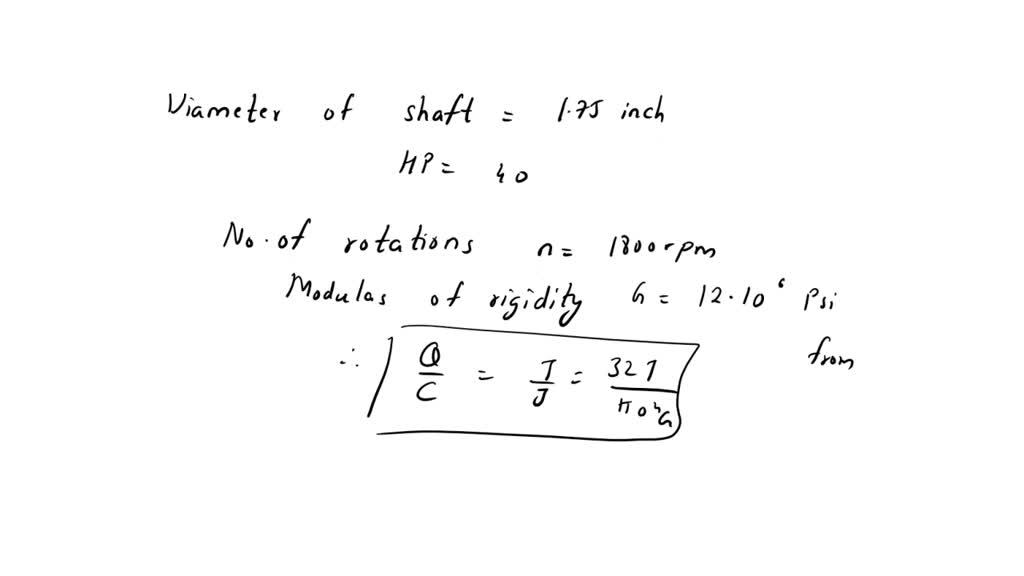 Diameter of shaft = 1.75 inch
HP = 40
No. of rotations n = 1800 rpm
Modulas of rigidity G = 12·10⁶ Psi
from
∴ Q/C = T/J = 32T/πD⁴G